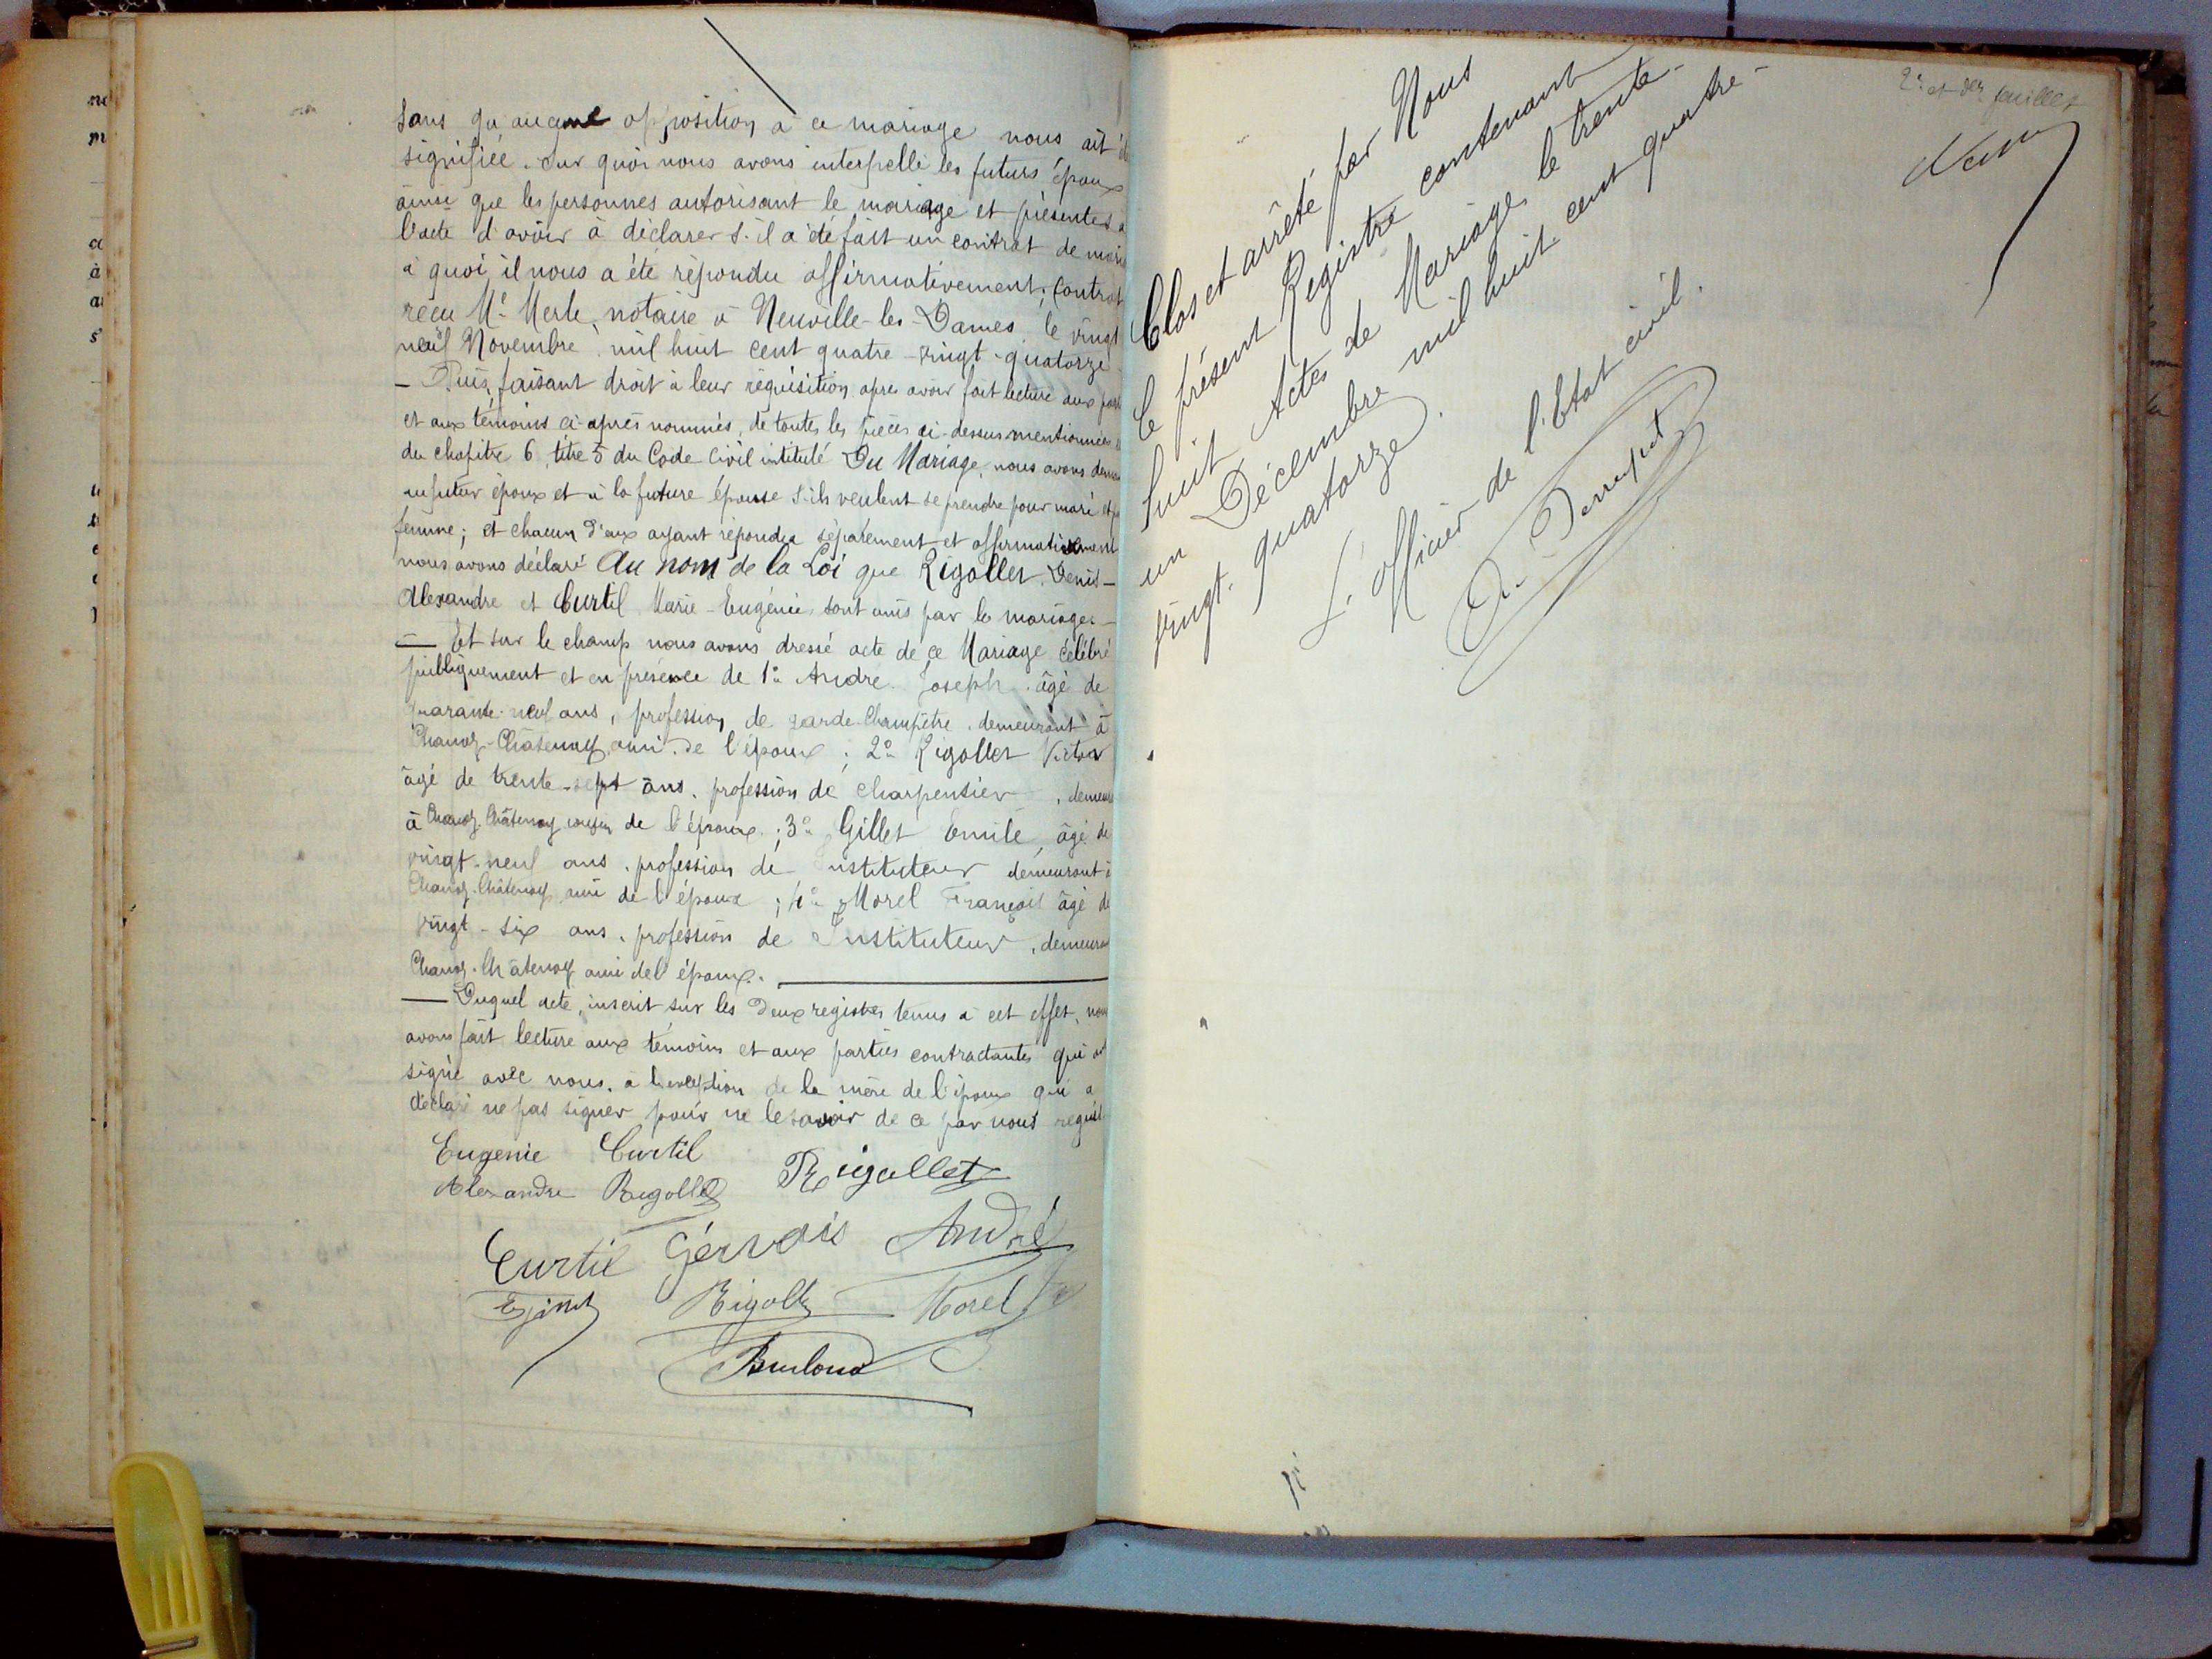 sans qu'aucune opposition à ce mariage nous ait
signifiée. Sur quoi nous avons interpellé les futurs époux
ainsi que les personnes autorisant le mariage et présentes à
l'acte d'avoir à déclarer s'il a été fait un contrat de
à quoi il nous a été répondu affirmativement; Contrat
reçu Me Merle, notaire à Neuville-les-Dames, le vingt
neuf Novembre mil huit cent quatre-vingt-quatorze
— Puis, faisant droit à leur réquisition après avoir fait lecture aux
et aux témoins ci-après nommés, de toutes les pièces ci-dessus mentionnées
du chapitre 6, titre 5 du Code Civil intitulé Du Mariage, nous avons
au futur époux et à la future épouse s'ils veulent se prendre pour mari et
femme; et chacun d'eux ayant répondu séparément et affirmativement
nous avons déclaré Au nom de la Loi que Rigollet Denis-
Alexandre et Curtil Marie-Eugénie sont unis par le mariage.
— Et sur le champ nous avons dressé acte de ce Mariage célébré
publiquement et en présence de 1° André Joseph, âgé de
quarante-neuf ans, profession de garde-Champêtre, demeurant à
Chanoz-Châtenay ami de l'époux; 2° Rigollet Victor
âgé de trente-sept ans, profession de charpentier,
à Chanoz-Châtenay cousin de l'époux; 3° Gillet Emile, âgé de
vingt-neuf ans, profession de Instituteur demeurant à
Chanoz-Châtenay ami de l'époux; 4° Morel François âgé de
vingt-six ans, profession de Instituteur,
Chanoz-Châtenay ami de l'époux.
— Duquel acte, inscrit sur les deux registres tenus à cet effet, nous
avons fait lecture aux témoins et aux parties contractantes qui ont
signé avec nous, à l'exception de la mère de l'époux qui a
déclaré ne pas signer pour ne le savoir de ce par nous
Eugenie Curtil Rigollet
Alexandre Rigollet
Curtil Gervais André
Rigollet Morel
2e et der feuillet
Clos et arrêté par Nous
le présent Registre contenant
huit Actes de Mariage, le trente-
un Décembre mil huit cent quatre-
vingt-quatorze.
L'officier de l'Etat civil.